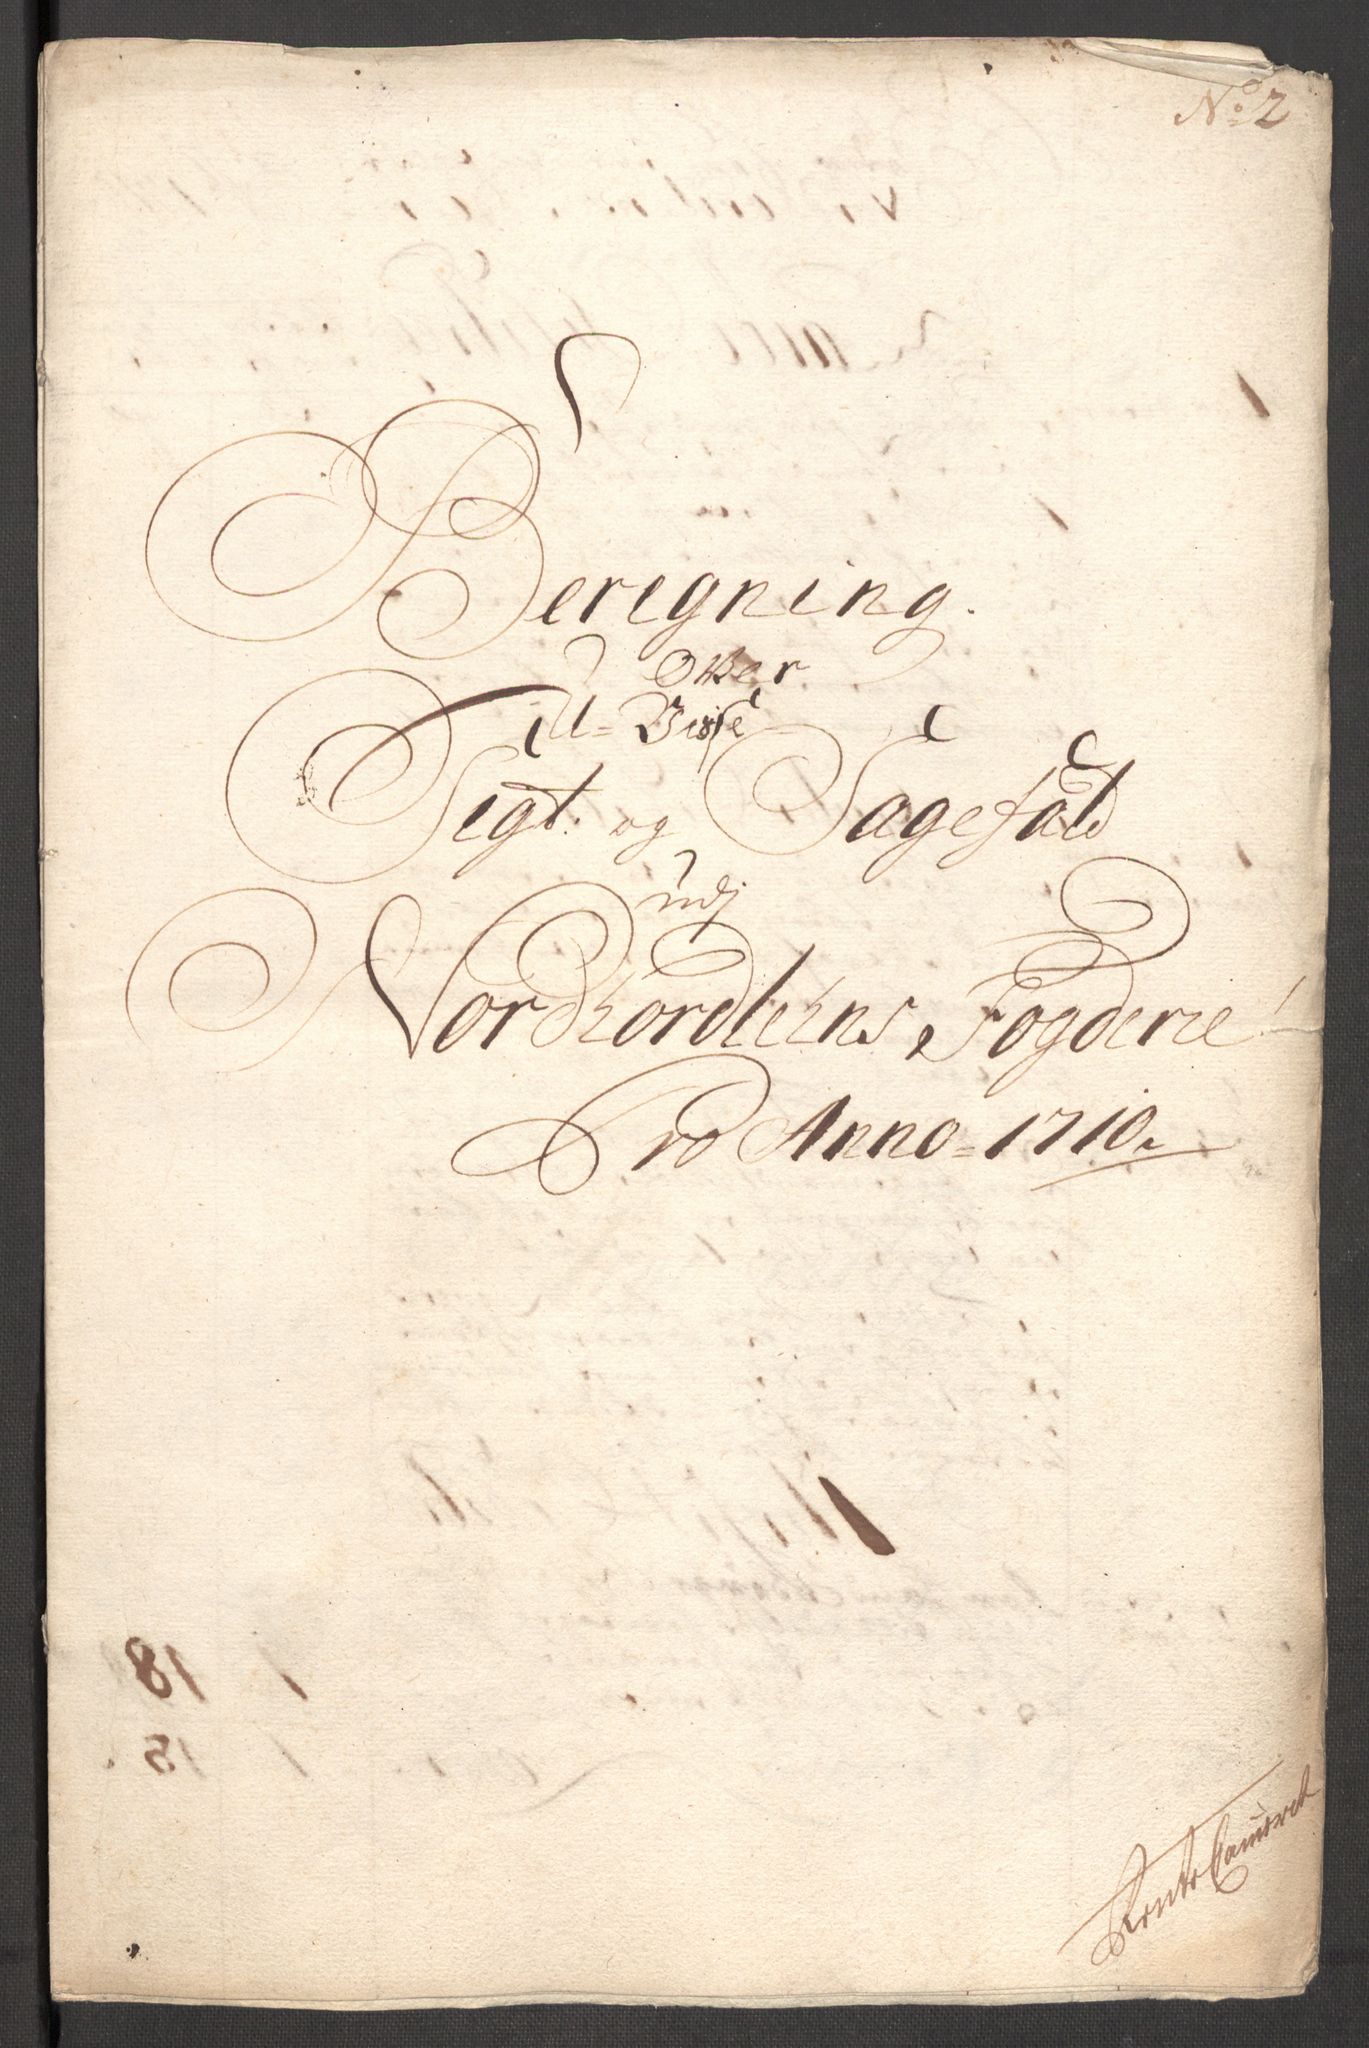 No: 2
Beregning.
Over
U-Visse
Sigt. og Sagefald
udj
Nordhordlehns Fogderie
Pro Anno = 1710.
Rente Cammeret